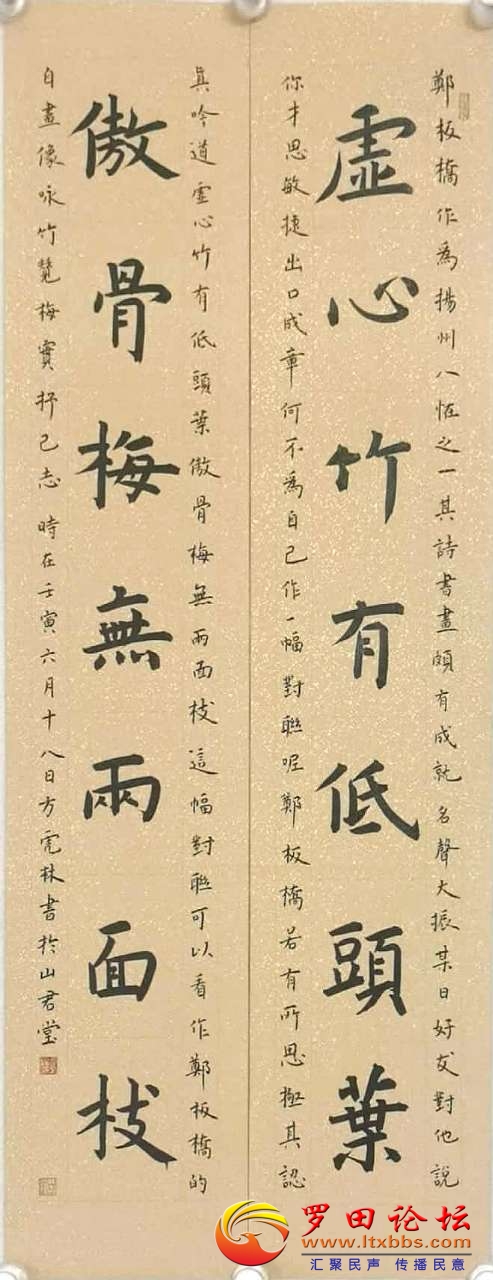 鄭板橋作為揚州八怪之一其詩書畫頗有成就名聲大振某日好友對他說
虛心竹有低頭葉
你才思敏捷出口成章何不為自己作一幅對聯呢鄭板橋若有所思極其認
真吟道虛心竹有低頭葉傲骨梅無兩面枝這幅對聯可以看作鄭板橋的
傲骨梅無兩面枝
自畫像咏竹贊梅實抒己志時在壬寅六月十八日方虎林書於山君堂
罗田论坛
www.ltxbbs.com
汇聚民声 传播民意